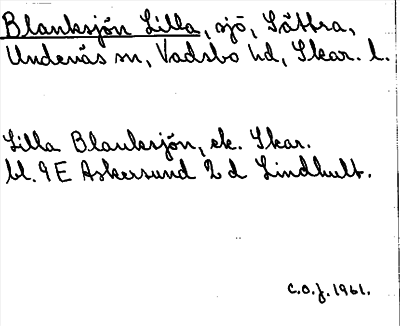 Blanksjön Lilla, sjö, Sättra,
Undenäs sn, Vadsbo hd, Skar. l.
Lilla Blanksjön, ek. Skar.
bl. 9E Askersund 2 d Lindhult.
C.O.J. 1961.